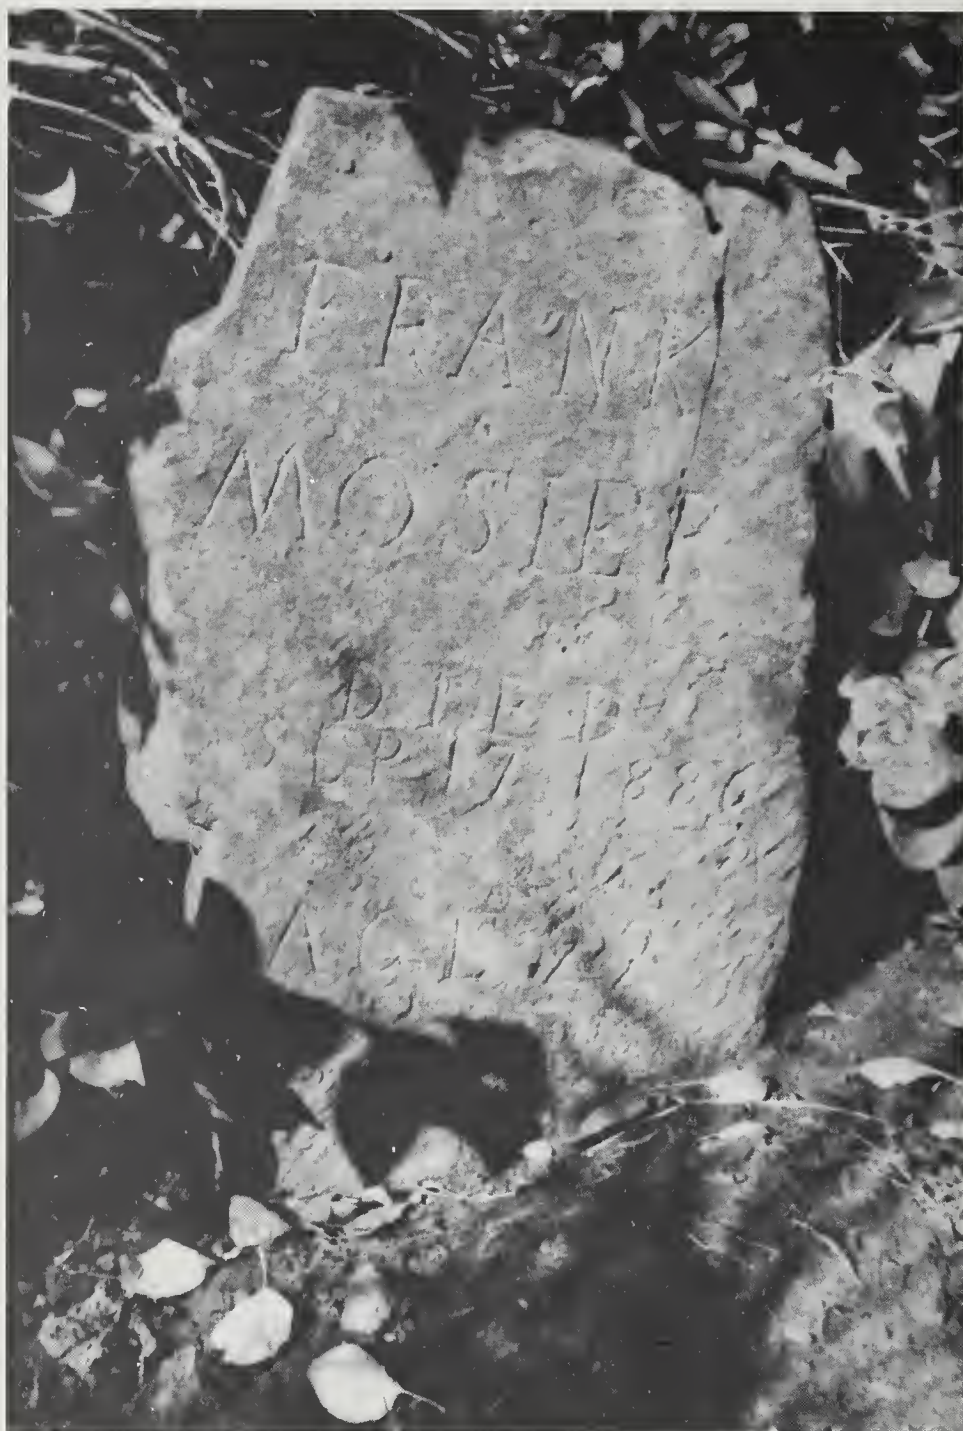 FRANK
MOSIER
DIED
SEP 17 1886
AGE